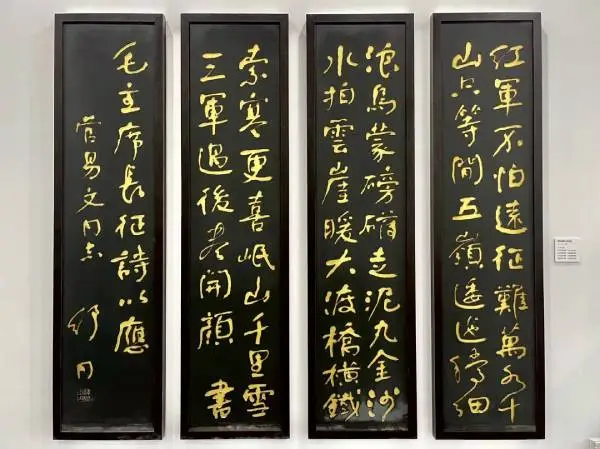 紅軍不怕遠征難萬水千
山只等閒五嶺逶迤騰細
浪烏蒙磅礴走泥丸金沙
水拍雲崖暖大渡橋橫鐵
索寒更喜岷山千里雪
三軍過後尽開顏 書
毛主席長征詩以應
管易文同志
舒同